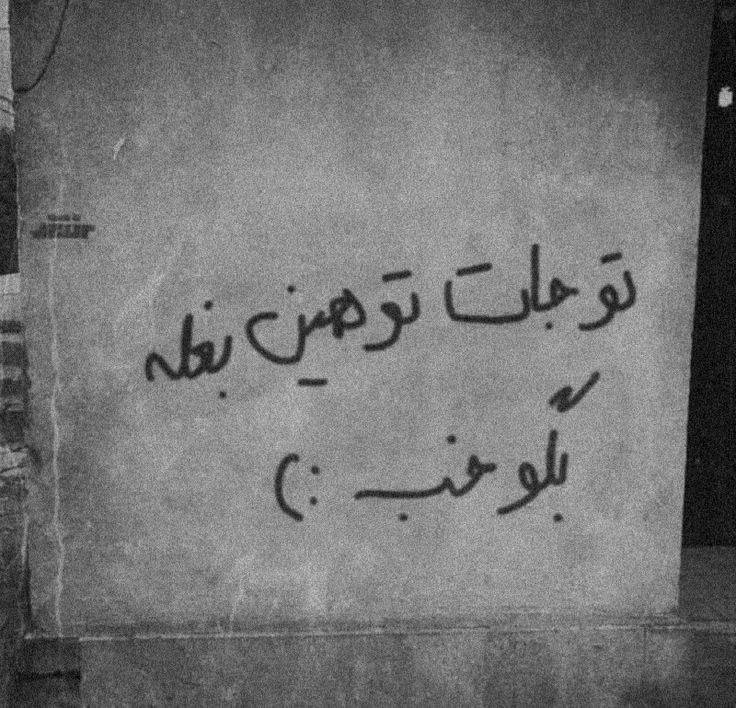 تو جات تو همین بغله
بگو خب :)